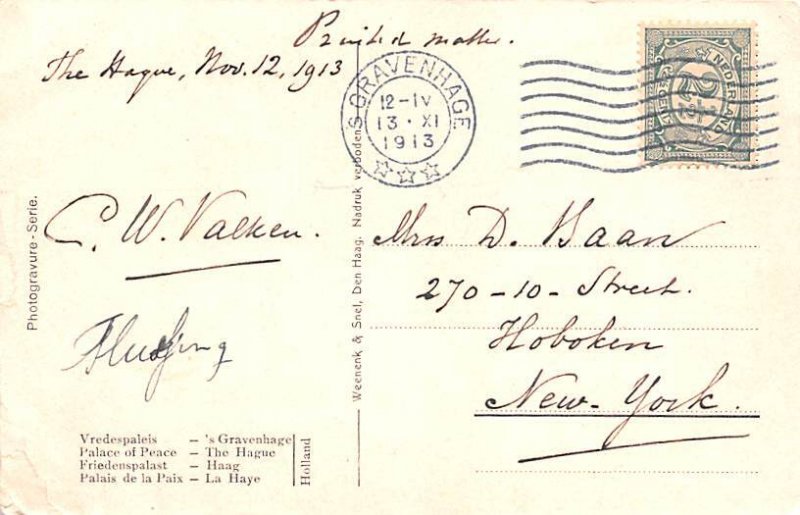 Printed matter.
The Hague, Nov. 12, 1913
'S GRAVENHAGE
12-IV
13 · XI
1913
NEDERLAND
2½
C. W. Valken.
Mrs D. Haan
270 - 10 - Street.
Hoboken
New-York.
Photogravure - Serie.
Weenenk & Snel, Den Haag. Nadruk verboden.
Vredespaleis – 's Gravenhage
Palace of Peace – The Hague
Friedenspalast – Haag
Palais de la Paix – La Haye
Holland